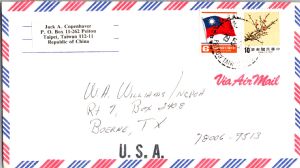 Jack A. Copenhaver
P. O. Box 11-262 Peitou
Taipei, Taiwan 112-11
Republic of China
10
Via Air Mail
W.A. Williams/
Rt 9, Box 2408
Boerne, TX
78006-9513
U. S. A.